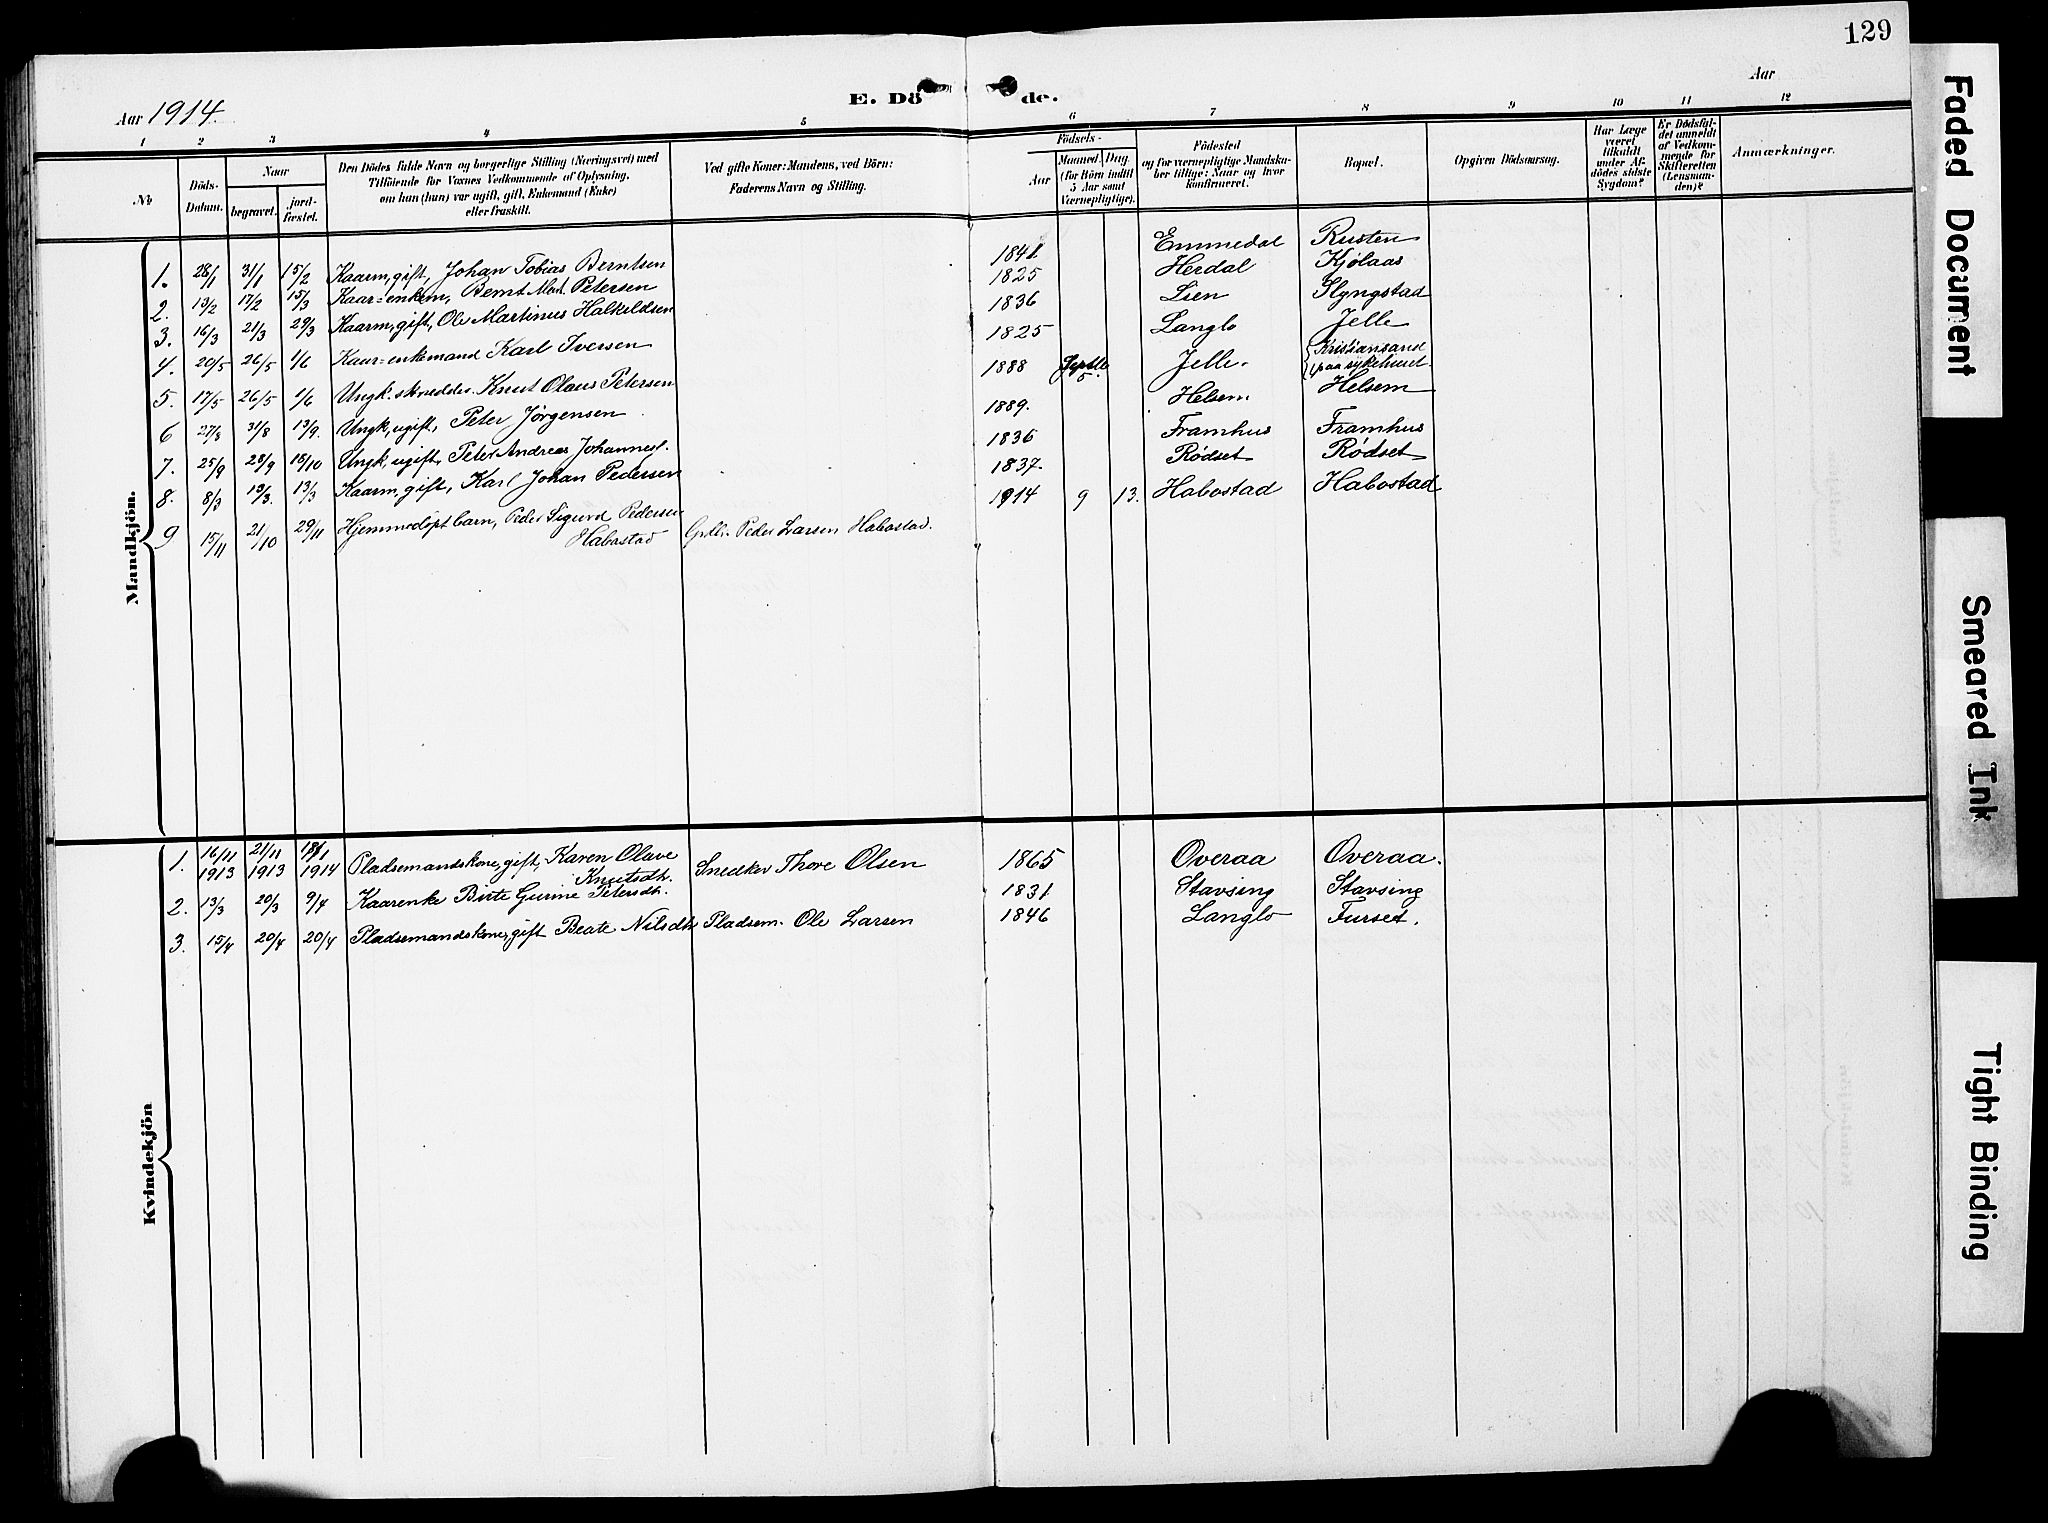 129
Aar 1914.
E. Dö de.
Aar
1 2 3 4 5 6 7 8 9 10 11 12
No
Döds-Datum.
Naar
begravet.
jordfæstet.
Den Dödes fulde Navn og borgerlige Stilling (Næringsvei) med
Tilföiende for Voxnes Vedkommende af Oplysning,
om han (hun) var ugift, gift, Enkemand (Enke)
eller fraskilt.
Ved gifte Koner: Mandens, ved Börn:
Faderens Navn og Stilling.
Födsels-
Aar
Maaned. Dag.
(for Börn indtil
5 Aar samt
Værnepligtige).
Födested
og for værnepligtige Mandskaber tillige: Naar og hvor
konfirmeret.
Bopæl.
Opgiven Dödsaarsag.
Har Læge
været
tilkaldt
under Afdödes sidste
Sygdom?
Er Dödsfaldet anmeldt
af Vedkommende for
Skifteretten
(Lensmanden)?
Anmærkninger.
Mandkjön.
1. 28/1 31/1 15/2 Kaarm, gift, Johan Tobias Berntsen 1841 Emmedal Rusten
2. 13/2 17/2 15/3 Kaar=enkem, Bernt Mart. Petersen 1825 Herdal Kjølaas
3. 16/3 21/3 29/3 Kaarm, gift, Ole Martinus Halkildsen 1836 Lien Slyngstad
4. 20/5 26/5 1/6 Kaar=enkemand Karl Iversen 1825 Langlo Jelle
5. 17/5 26/5 1/6 Ungk. skrædder. Knut Olaus Petersen 1888 Septbr 5. Jelle. Kristiansand
paa sykehuset.
6 27/8 31/8 13/9. Ungk, ugift, Peter Jørgensen 1889. Helsem Helsem
7. 25/9 28/9 18/10 Ungk, ugift, Peter Andreas Johannes. 1836 Framhus Framhus
8. 8/3 13/3. 13/3 Kaarm, gift, Karl Johan Pedersen 1837. Rødset Rødset
9 15/11 21/10 29/11 Hjemmedøpt barn, Peder Sigurd Pedersen
Habostad Gdbr. Peder Larsen Habostad. 1914 9 13. Habostad Habostad
Kvindekjön
1. 16/11 1913 21/11 1913 18/1 1914 Pladsemandskone, gift, Karen Olave
Knutsdtr. Snedker Thore Olsen 1865 Overaa Overaa.
2. 13/3 20/3 9/4 Kaarenke Birte Gurine Petersdtr. 1831 Stavsing Stavsing
3. 15/4 20/4 20/4 Pladsemandskone, gift Beate Nilsdtr Pladsem. Ole Larsen 1846 Langlo Furset.
Faded Document
Smeared Ink
Tight Binding